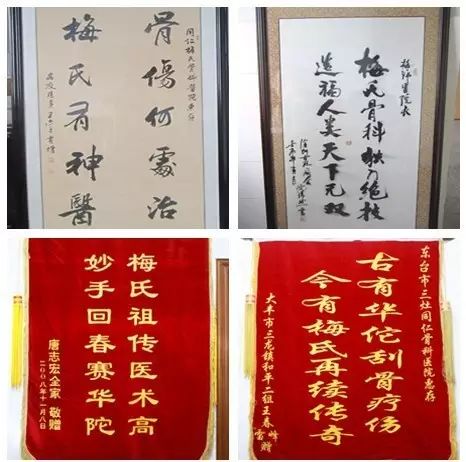 同仁梅氏骨科醫院惠存
骨傷何處治
梅氏有神醫
院长
梅氏骨科独门绝技
造福人类天下无双
梅氏祖传医术高
妙手回春赛华陀
唐志宏全家 敬赠
二〇〇八年十一月八日
东台市三灶同仁骨科医院惠存
古有华佗刮骨疗伤
今有梅氏再续传奇
大丰市三龙镇和平二组王春峰雷赠